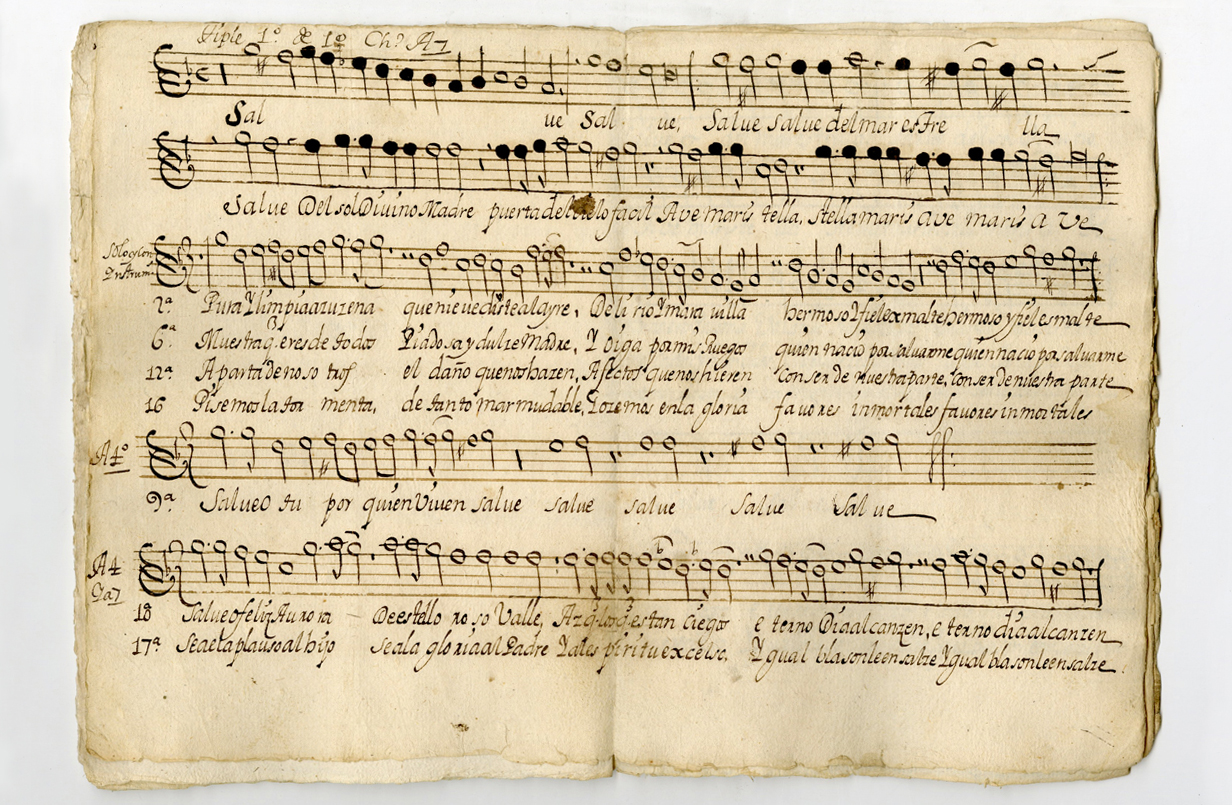 Tiple 1º de 1º Chº A7
Sal ve Sal ve, Salve salve del mar estre lla
Salve Del sol Divino Madre puerta del Cielo facil Ave maris tella, stella maris ave maris a ve
Solo y con
Instrum
2ª Pura Y limpia azuzena que nieve diste al ayre, De li rio Y mara villa hermoso Y fiel exmalte hermoso y fiel esmalte
6ª Muestra q. eres de todos Piadosa y dulze Madre, Y Oiga por mis Ruegos quien nacio por salvarme quien nacio por salvarme
12ª Aparta de noso tros el daño que nos hazen, Afectos que nos hieren con ser de nuestra parte, con ser de nuestra parte
16 Pisemos la tor menta, de tanto mar mudable, Y ozemos en la gloria favores inmortales favores inmortales
A 4º
9ª Salve O tu por quien Viven salve salve salve Salve Sal ve
A 4
18 Salve o feliz Auro ra De estello ro so Valle, A estan Ciegos e terno Dia alcanzen, e terno dia alcanzen
17ª Sea el aplauso al hijo sea la gloria al Padre Y al es piritu excelso, Y gual blason le ensalze Y gual blason le ensalze